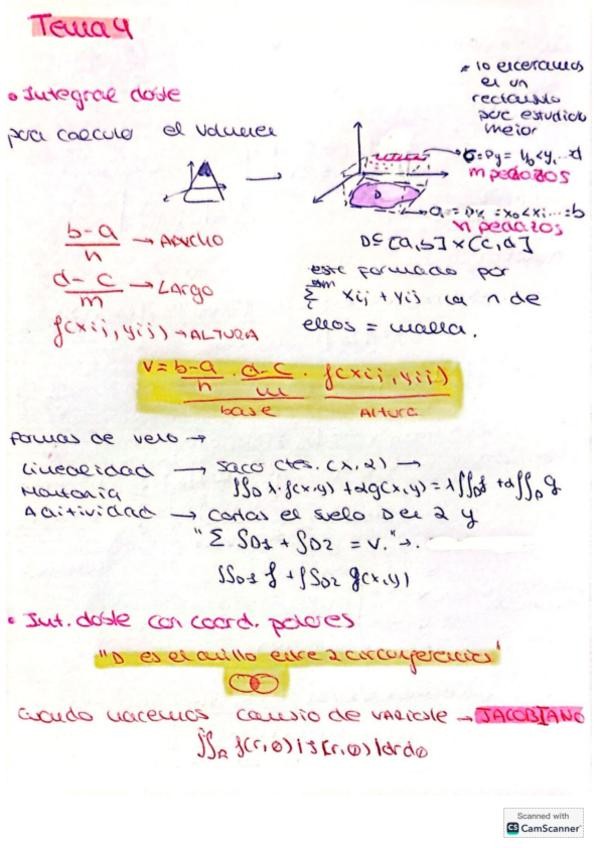 Tema 4
• Integral doble
para calculo el volumen
* lo encerramos
en un
rectangulo
para estudiar
mejor
m pedazos
n pedazos
D ⊆ [a,b] × [c,d]
D
b-a/n → ANCHO
d-c/m → LARGO
f(xij, yij) → ALTURA
este formado por
Σ xij + yij con n de
ellos = malla.
V = b-a/n · d-c/m · f(xij, yij)
base Altura
formas de verlo →
Linealidad → saco ctes.
Monotonia
Aditividad → cortas el suelo D en 2 y
"Σ ∫D1 + ∫D2 = V." →.
∬D1 f + ∬D2 g(x,y)
• Int. doble con coord. polares
"D es el anillo entre 2 circunferencias"
cuando hacemos cambio de variable → JACOBIANO
∬R f(r,θ) |J(r,θ)| dr dθ
Scanned with
CS CamScanner